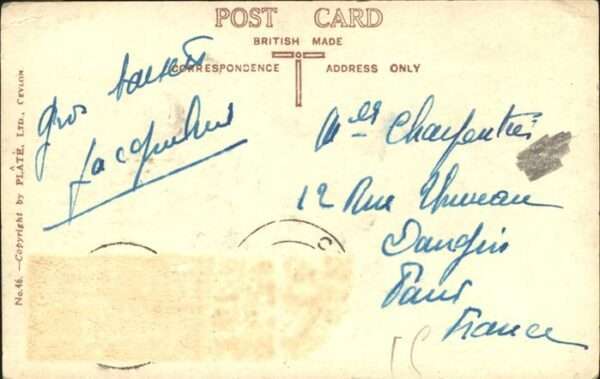 POST CARD
BRITISH MADE
CORRESPONDENCE
ADDRESS ONLY
Gros baisers
Jacqueline
Mlles Charpentier
12 Rue
Paris
France
No.46.—Copyright by PLÂTÉ, LTD., CEYLON